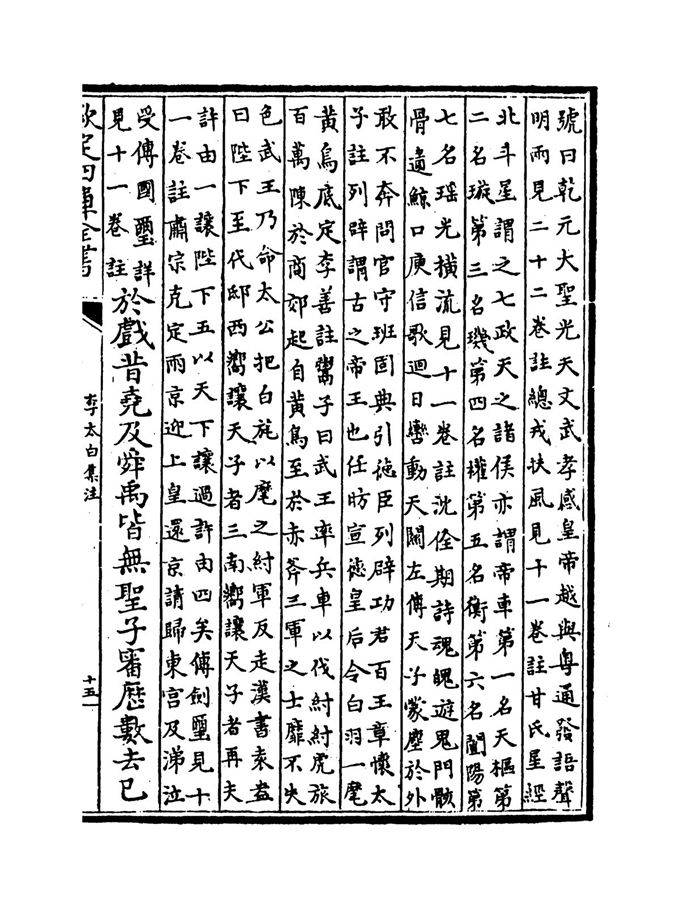 號曰乾元大聖光天文武孝感皇帝越與粤通發語聲
明兩見二十二卷註總戎扶風見十一卷註甘氏星經
北斗星謂之七政天之諸侯亦謂帝車第一名天樞第
二名璇第三名璣第四名權第五名衡第六名闓陽第
七名瑶光横流見十一卷註沈佺期詩魂魄遊鬼門骸
骨遺鯨口庾信歌迴日轡動天關左傳天子蒙塵於外
敢不奔問官守班固典引徳臣列辟功君百王章懐太
子註列辟謂古之帝王也任昉宣徳皇后令白羽一麾
黄鳥底定李善註鬻子曰武王率兵車以伐紂紂虎旅
百萬陳於商郊起自黄鳥至於赤斧三軍之士靡不失
色武王乃命太公把白旄以麾之紂軍反走漢書袁盎
曰陛下至代邸西嚮讓天子者三南嚮讓天子者再夫
許由一讓陛下五以天下讓過許由四矣傳劍璽見十
一卷註肅宗克定兩京迎上皇還京請歸東宫及涕泣
受傳國璽詳
見十一卷註
於戲昔堯及舜禹皆無聖子審歴數去已
欽定四庫全書
李太白集注
十五